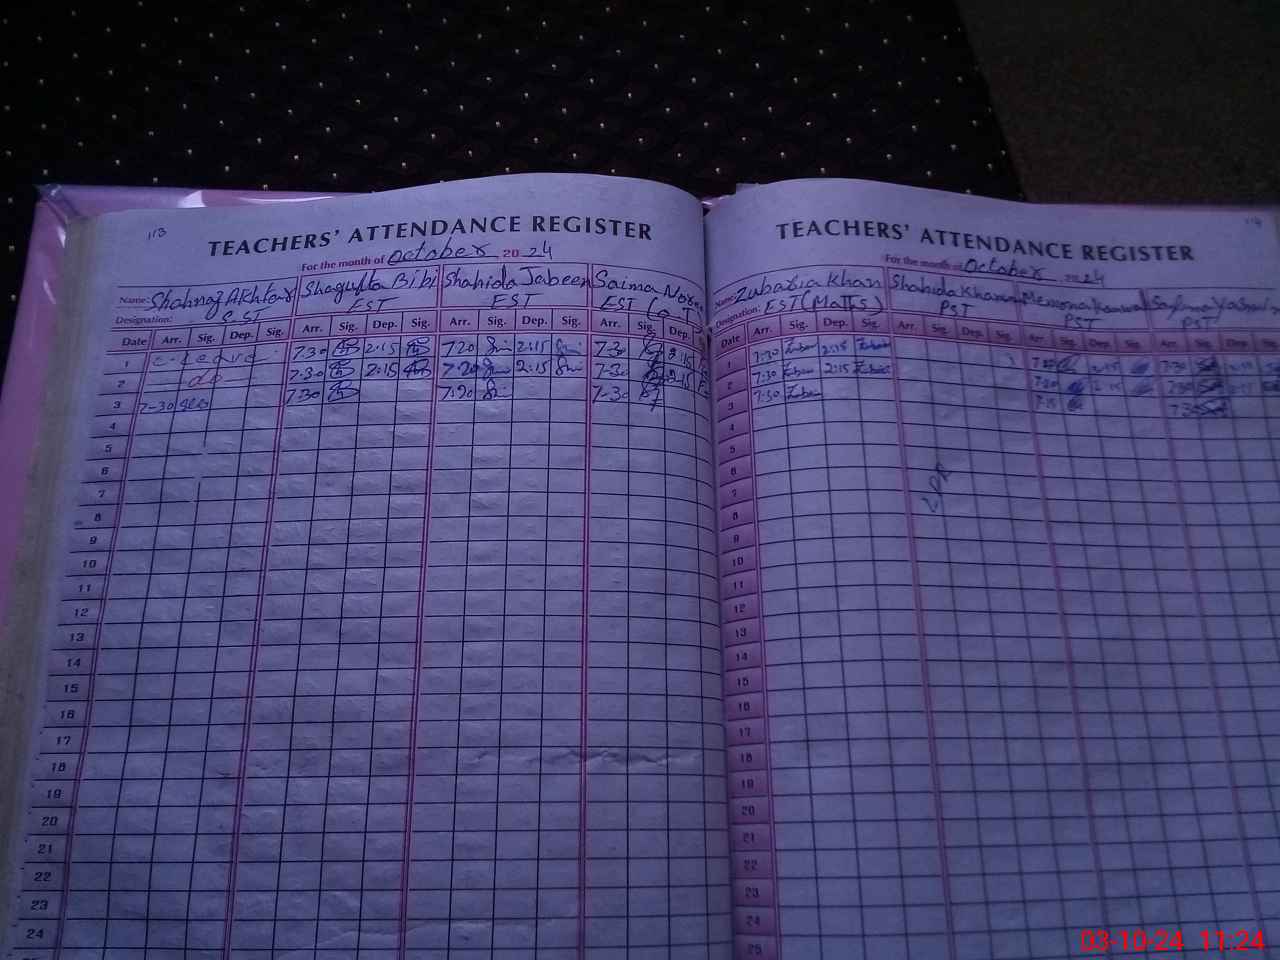 113
TEACHERS' ATTENDANCE REGISTER
For the month of October 2024
Name: Shahnaz Akhtar Shagufta Bibi Shahida Jabeen Saima
Designation: S.ST EST EST EST
Date Arr. Sig. Dep. Sig. Arr. Sig. Dep. Sig. Arr. Sig. Dep. Sig. Arr. Sig. Dep.
1 c-leave 7:30 2:15 7:20 2:15 7-30 2:15
2 do 7:30 2:15 7:20 2:15 7-30 2:15
3 7-30 7:30 7:20 7-30
4
5
6
7
8
9
10
11
12
13
14
15
16
17
18
19
20
21
22
23
24
114
TEACHERS' ATTENDANCE REGISTER
For the month of October 2024
Name: Zubaria Khan Shahida Khanam Memona Kanwal
Designation. EST (Maths) PST PST PST
Date Arr. Sig. Dep. Sig. Arr. Sig. Dep. Sig. Arr Sig. Dep. Sig. Arr. Sig. Dep Sig.
1 7:30 2:15 7:30
2 7:30 2:15 7:20 2:15 7:30
3 7:30 7:15 7:30
4
5
6
7
8
9
10
11
12
13
14
15
16
17
18
19
20
21
22
23
24
25
LPR
03-10-24 11:24